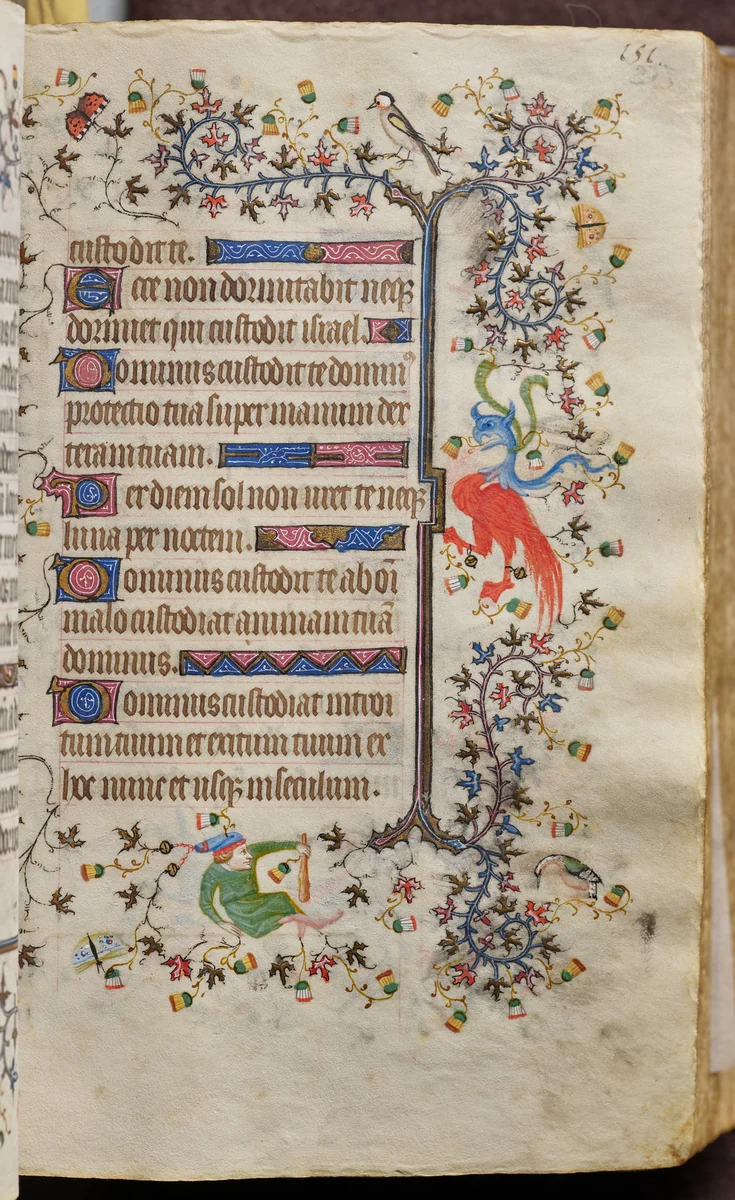 custodit te.
Ecce non dormitabit neqꝫ
dormiet qui custodit israel.
Dominus custodit te domin⁹
protectio tua super manum dex
teram tuam.
Per diem sol non uret te neqꝫ
luna per noctem.
Dominus custodit te ab oĩ
malo custodiat animam tuã
dominus.
Dominus custodiat introi
tum tuum et exitum tuum ex
hoc nunc et usqꝫ in seculum.